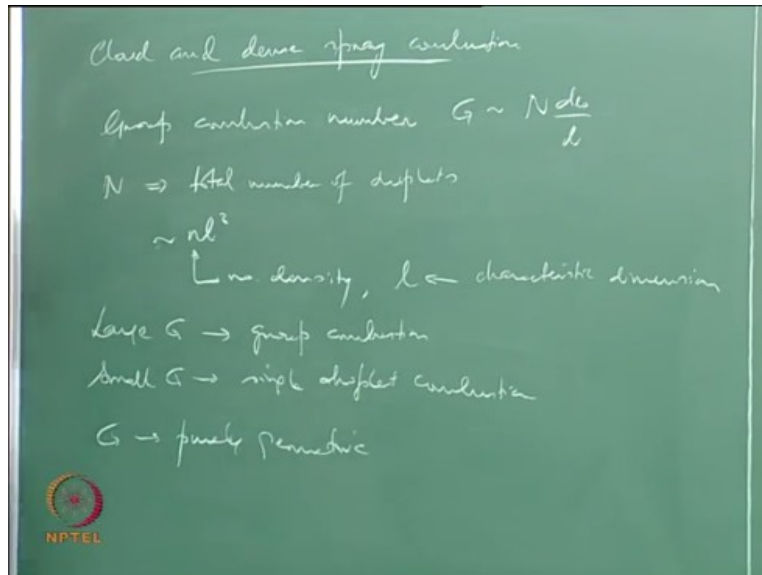 Cloud and dense spray combustion
Group combustion number G ~ N d₀₀/l
N ⇒ total number of droplets
~ nl³
no. density, l ← characteristic dimension
Large G → group combustion
Small G → single droplet combustion
G → purely geometric
NPTEL